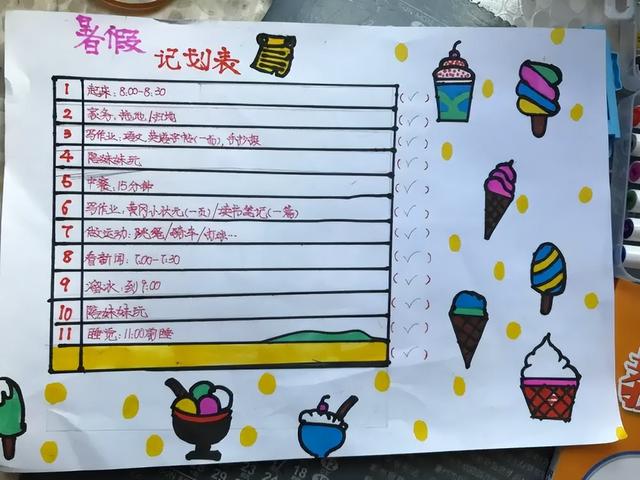 暑假
记划表
1 起床：8:00-8:30
2 家务：拖地/扫地
3 写作业：语文，英语字帖(一页)，手抄报
4 陪妹妹玩
5 中餐：15分钟
6 写作业：黄冈小状元(一页)/读书笔记(一篇)
7 做运动：跳绳/骑车/打球…
8 看新闻：7:00-7:30
9 溜冰：到9:00
10 陪妹妹玩
11 睡觉：11:00前睡